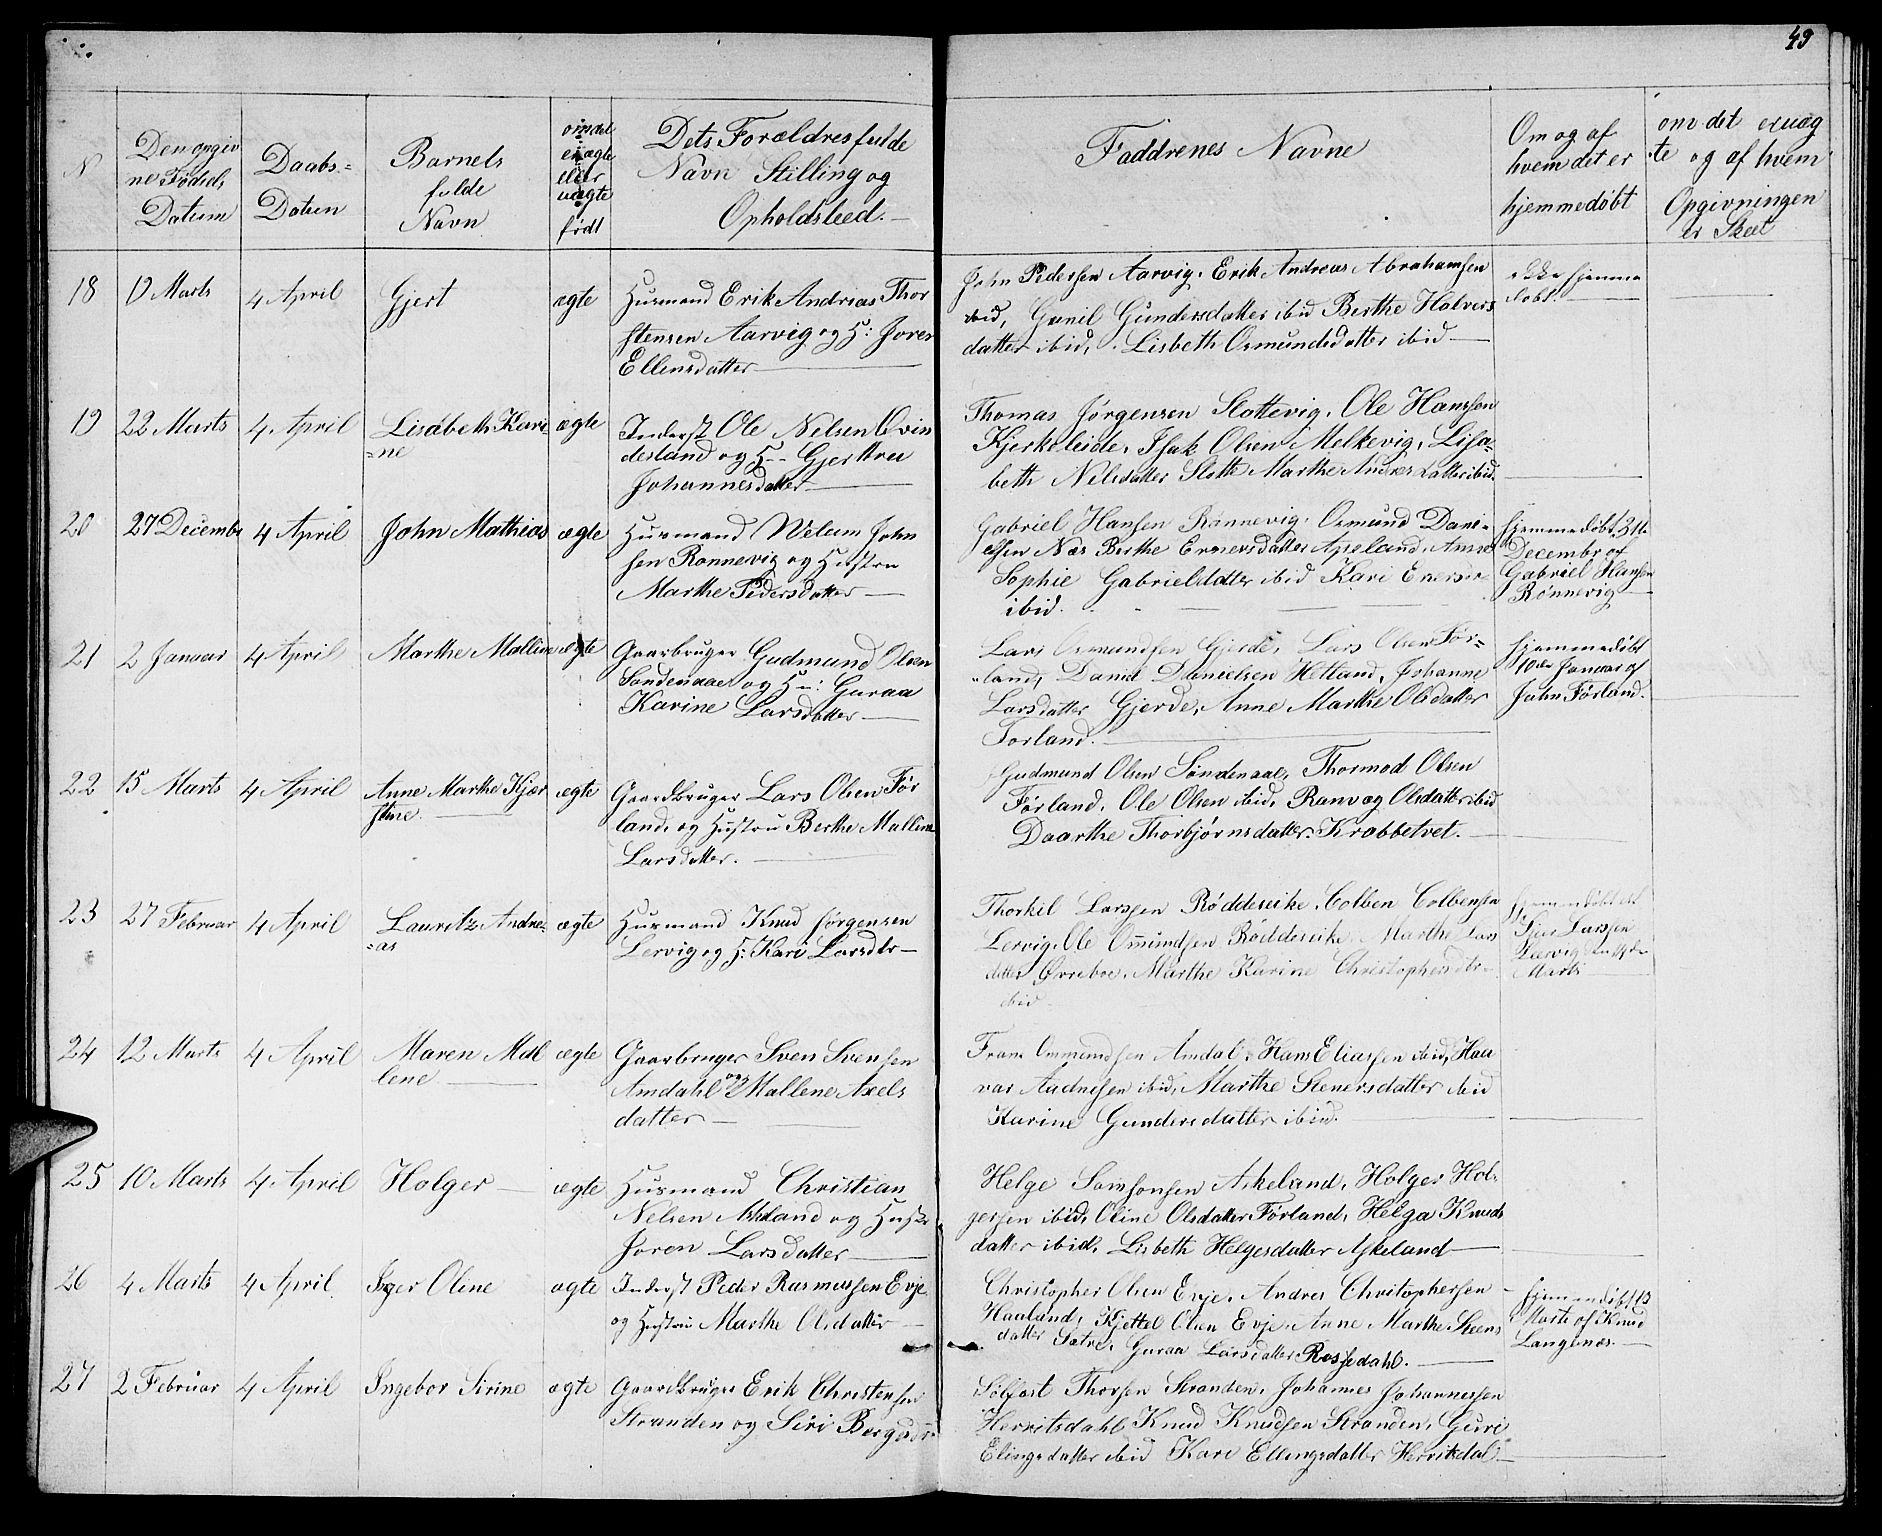 49
N
Den opgiv
ne Fødsels
Datum
Daabs-
Datum
Barnets
fulde
Navn
om det
er ægte
eller
uægte
født
Dets Forældres fulde
Navn Stilling og
Opholdsted.
Faddrenes Navne
Om og af
hvem det er
hjemmedøbt
om det er uæg
te og af hvem
Opgivningen
er Skeet
18 9 Marts 4 April Gjert ægte Husmand Erik Andreas Thor
stensen Aarvig og H: Joren
Ellensdatter
John Pedersen Aarvig. Erik Andreas Abrahamsen
ibid, Gunil Gundersdatter ibid Berthe Halvors
datter ibid, Lisbeth Osmundsdatter ibid
ikke hjemme
døbt.
19 22 Marts 4 April Lisabeth Kari
=ne
ægte Inderst Ole Nelsen Qvin
desland og H. Gjerttru
Johannesdatter
Thomas Jørgensen Slottevig. Ole Hansen
Kjerkeleide, Isak Olsen Melkevig, Lisa-
beth Nilsdatter Slotte Marthe Andersdatter ibid.
20 27 Decembr 4 April John Mathias ægte Husmand Vilum John
sen Rønnevig og Hustru
Marthe Pedersdatter
Gabriel Hansen Rønnevig. Osmund Dani-
elsen Næs Berthe Enersdatter Apeland Anne
Sophie Gabrielsdatter ibid Kari Enersdr
ibid.
hjemmedøbt 31te
Decembr af
Gabriel Hansen
Rønnevig
21 2 Januar 4 April Marthe Malline ægte Gaarbruger Gudmund Olsen
Søndenaae og H: Guraa
Karine Larsdatter
Lars Osmundsen Gjerde, Lars Olsen Før-
land, Daniel Danielsen Hetland, Johanne
Larsdatter Gjerde, Anne Marthe Olsdatter
Førland.
hjemmedøbt
10de Januar af
John Førland.
22 15 Marts 4 April Anne Marthe Kjær
stine.
ægte Gaardbruger Lars Olsen Før
land, og Hustru Berthe Malline
Larsdatter.
Gudmund Olsen Søndenaae, Thormod Olsen
Førland, Ole Olsen ibid, Ranvog Olsdatter ibid
Daarthe Thorbjørnsdatter Krabbetvet.
23 27 Februar 4 April Lauritz Andre-
=as
ægte Husmand Knud Jørgensen
Lervig og H: Kari Larsdtr
Thorkil Larssen Røddereike. Colben Colbensen
Lervig, Ole Omundsen Røddereike. Marthe Lars
datter Øvrebøe. Marthe Karine Christophersdtr
ibid
hjemmedøbt af
Larssen
Lervig
Marts
24 12 Marts 4 April Maren Mal
lene
ægte Gaarbruger Sven Svensen
Amdahl og Mallene Axels
datter
Frans Ommundsen Amdal. Hans Eliassen ibid, Haa
var Aadnesen ibid, Marthe Stenersdatter ibid
Karine Gundersdatter ibid.
25 10 Marts 4 April Holger ægte Husmand Christian
Nelsen Askland og Hustr
Joren Larsdatter
Helge Samsonsen Askeland, Holger Hol-
gersen ibid, Oline Olsdatter Førland, Helga Knuds
datter ibid, Lisbeth Helgesdatter Askeland
26 4 Marts 4 April Inger Oline ægte Inderst Peder Rasmussen Evje
og Hustru Marthe Olsdatter
Christopher Olsen Evje. Andres Christophersen
Haaland, Kjettel Olsen Evje Anne Marthe Steens
datter Sætre. Guraa Larsdatter Rossedahl.
hjemmedøbt 13
Marts af Knud
Langenæs.
27 2 Februar 4 April Ingebor Sirine ægte Gaardbruger Erik Christensen
Stranden og Siri Bergesdtr
Sølfæst Thorsen Stranden, Johannes Johannessen
Hervitsdahl Knud Knudsen Stranden, Guri
Elingsdatter ibid Kari Ellingsdatter Hervitsdal.